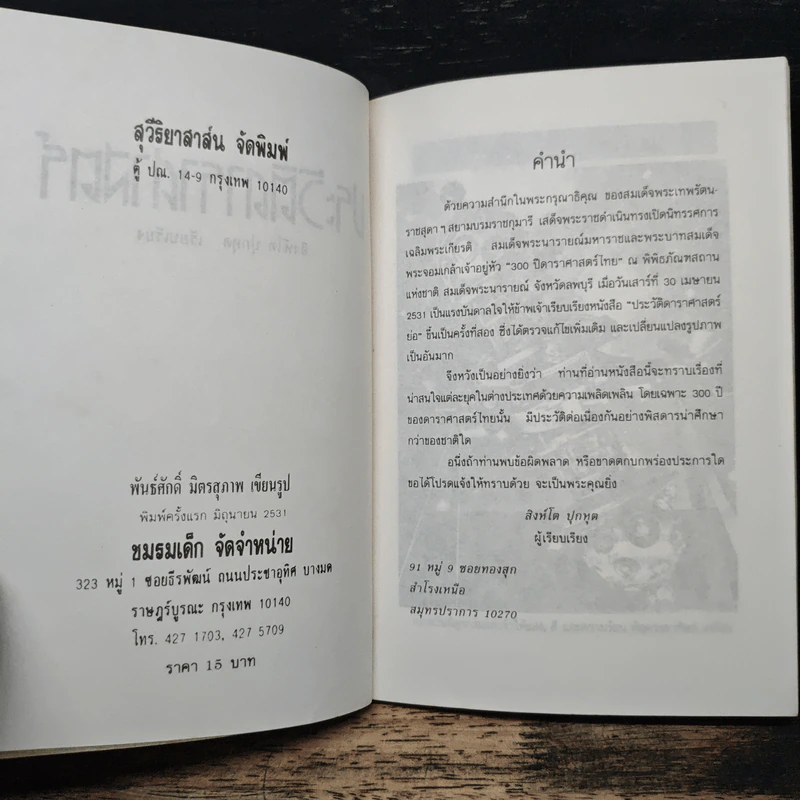 สุวีริยาสาส์น จัดพิมพ์
ตู้ ปณ. 14-9 กรุงเทพ 10140
พันธ์ศักดิ์ มิตรสุภาพ เขียนรูป
พิมพ์ครั้งแรก มิถุนายน 2531
ชมรมเด็ก จัดจำหน่าย
323 หมู่ 1 ซอยธีรพัฒน์ ถนนประชาอุทิศ บางมด
ราษฎร์บูรณะ กรุงเทพ 10140
โทร. 427 1703, 427 5709
ราคา 15 บาท
คำนำ
ด้วยความสำนึกในพระกรุณาธิคุณ ของสมเด็จพระเทพรัตน-
ราชสุดา ฯ สยามบรมราชกุมารี เสด็จพระราชดำเนินทรงเปิดนิทรรศการ
เฉลิมพระเกียรติ สมเด็จพระนารายณ์มหาราชและพระบาทสมเด็จ
พระจอมเกล้าเจ้าอยู่หัว "300 ปีดาราศาสตร์ไทย" ณ พิพิธภัณฑสถาน
แห่งชาติ สมเด็จพระนารายณ์ จังหวัดลพบุรี เมื่อวันเสาร์ที่ 30 เมษายน
2531 เป็นแรงบันดาลใจให้ข้าพเจ้าเรียบเรียงหนังสือ "ประวัติดาราศาสตร์
ย่อ" ขึ้นเป็นครั้งที่สอง ซึ่งได้ตรวจแก้ไขเพิ่มเติม และเปลี่ยนแปลงรูปภาพ
เป็นอันมาก
จึงหวังเป็นอย่างยิ่งว่า ท่านที่อ่านหนังสือนี้จะทราบเรื่องที่
น่าสนใจแต่ละยุคในต่างประเทศด้วยความเพลิดเพลิน โดยเฉพาะ 300 ปี
ของดาราศาสตร์ไทยนั้น มีประวัติต่อเนื่องกันอย่างพิสดารน่าศึกษา
กว่าของชาติใด
อนึ่งถ้าท่านพบข้อผิดพลาด หรือขาดตกบกพร่องประการใด
ขอได้โปรดแจ้งให้ทราบด้วย จะเป็นพระคุณยิ่ง
สิงห์โต ปุกหุต
ผู้เรียบเรียง
91 หมู่ 9 ซอยทองสุก
สำโรงเหนือ
สมุทรปราการ 10270